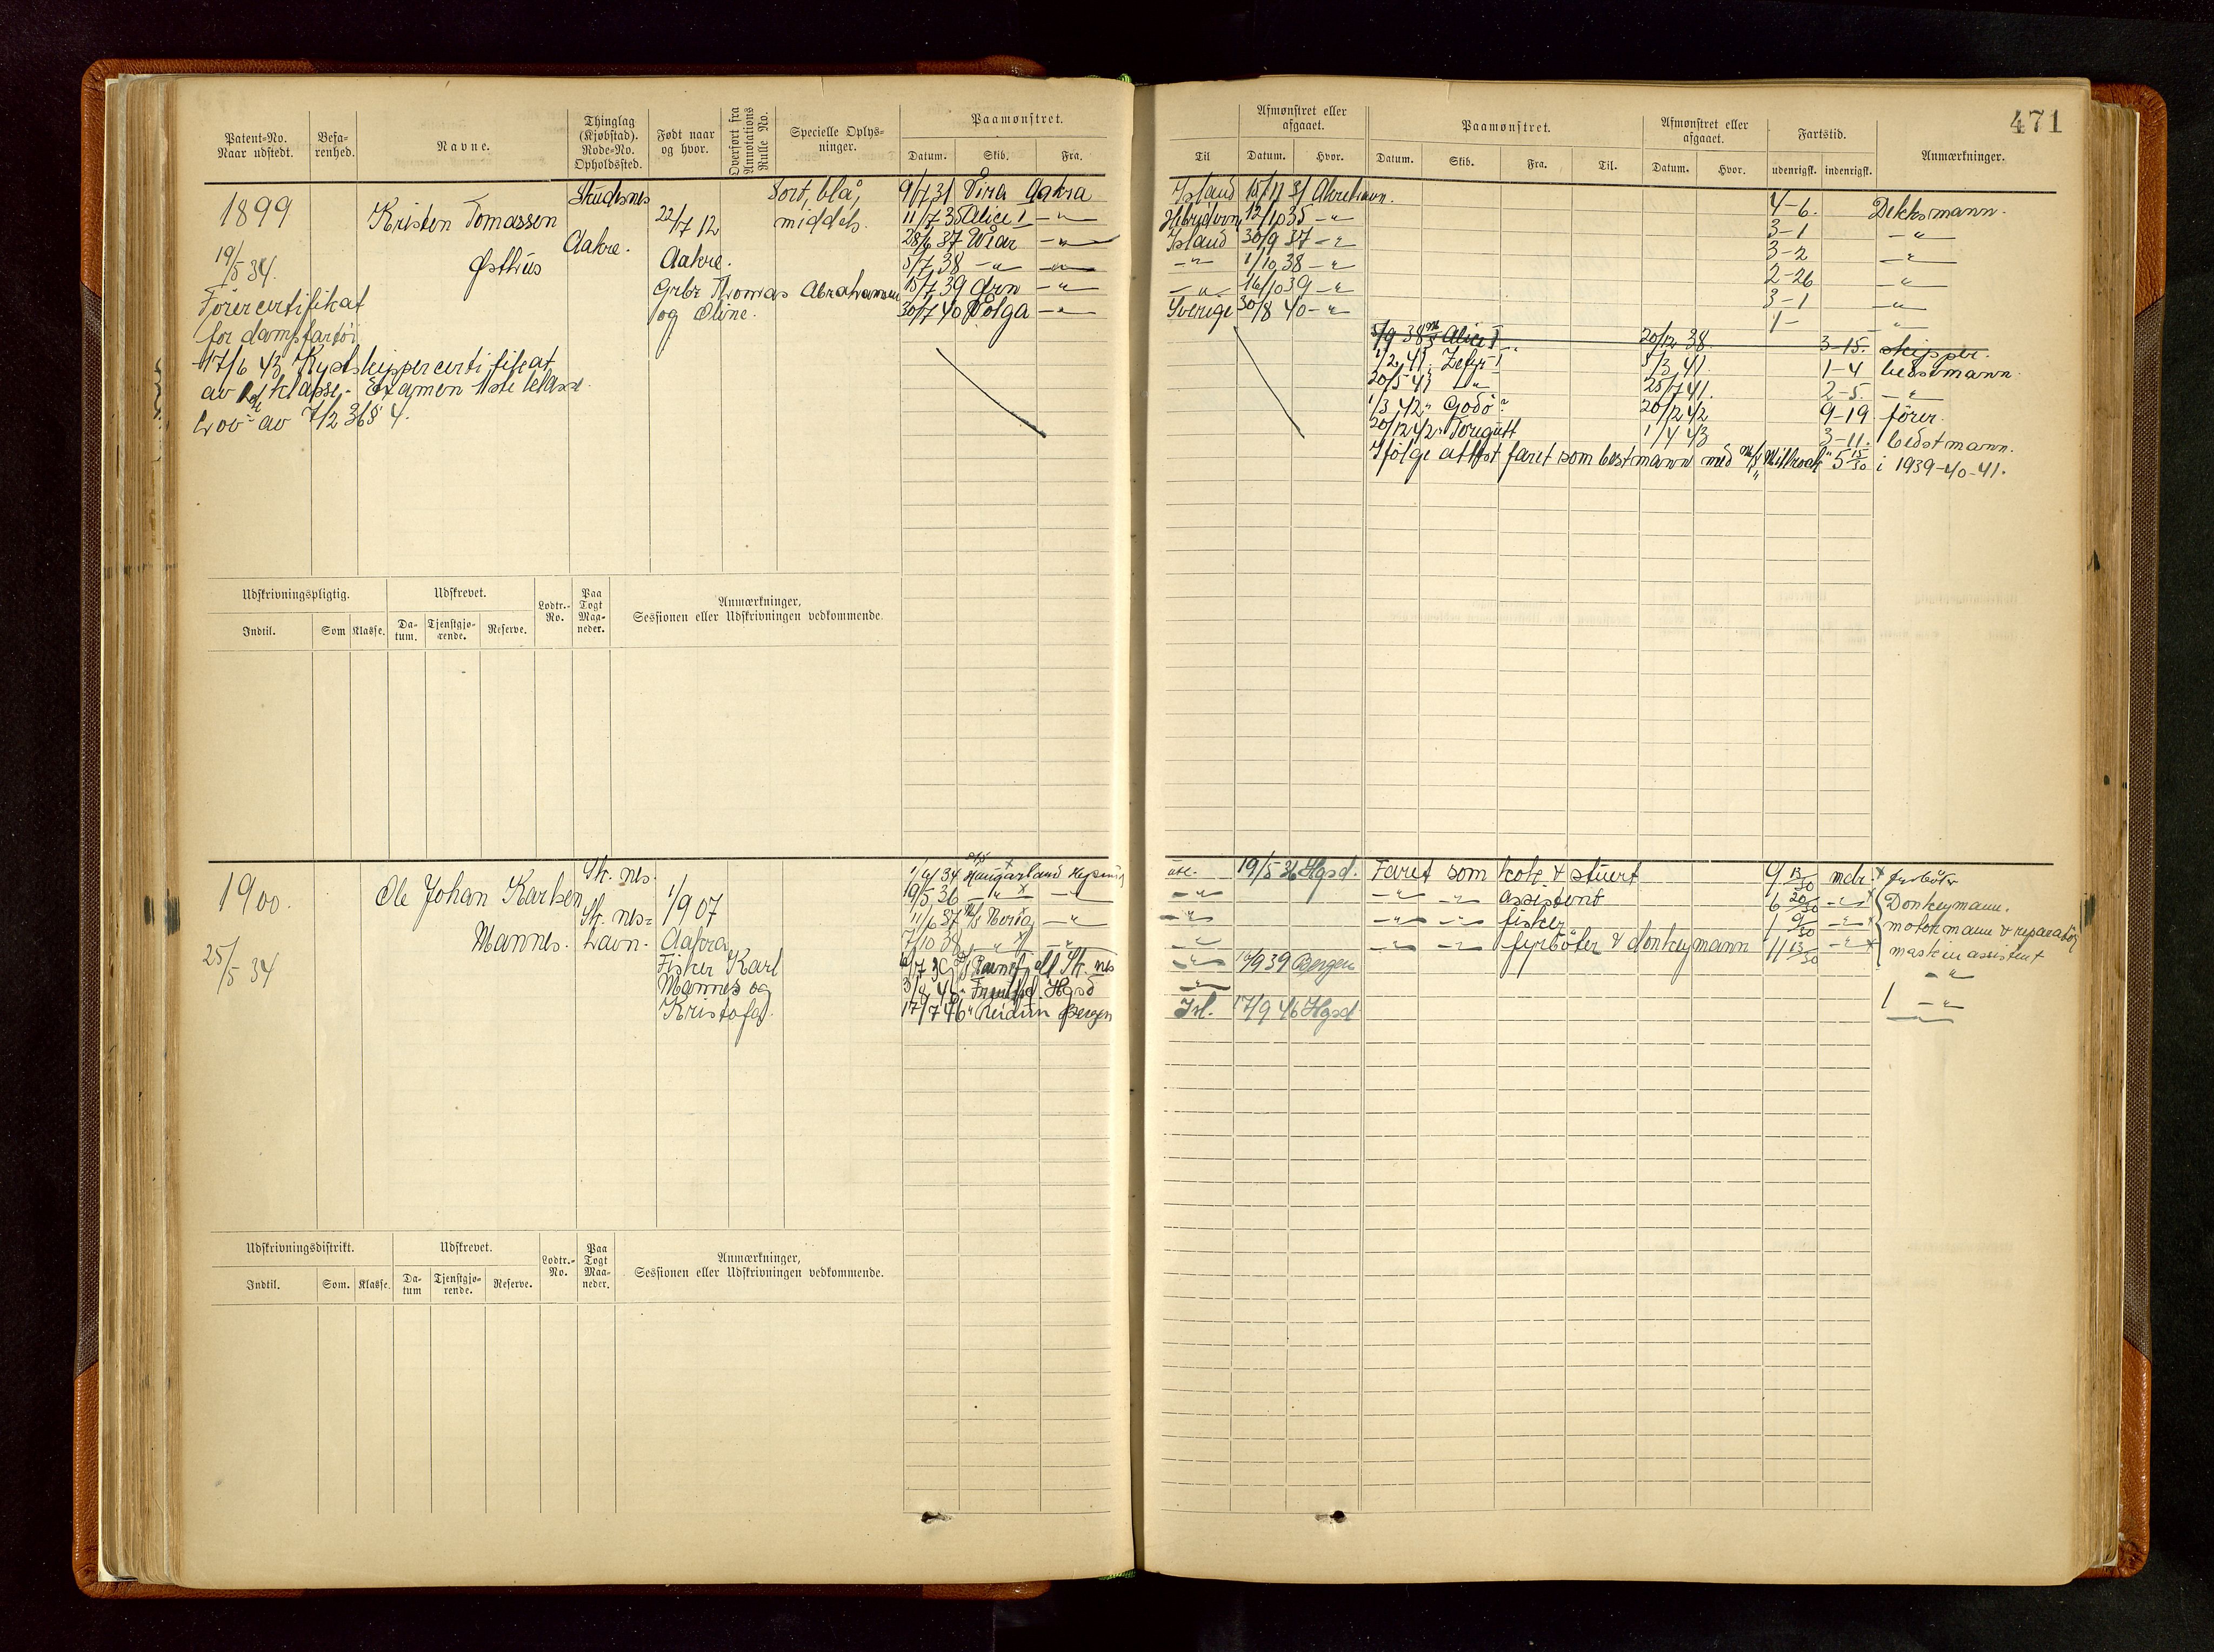 471
Patent-No. Naar udstedt.
Befarenhed.
Navne.
Thinglag (Kjøbstad). Rode-No. Opholdssted.
Født naar og hvor.
Overført fra Annotations Rulle No.
Specielle Oplysninger.
Paamønstret.
Datum. Skib. Fra.
Til
Afmønstret eller afgaaet.
Datum. Hvor.
Paamønstret.
Datum. Skib. Fra. Til.
Afmønstret eller afgaaet.
Datum. Hvor.
Fartstid.
udenrigsk. indenrigsk.
Anmærkninger.
1899
19/5 34.
Førercertifikat
for dampfartøi
17/6 43, Kystskippercertifikat
av klasse. Examen 1ste klasse.
Lov av 7/2 36 § 4.
Kristen Tomassen
Østhus
Skudesnes
Aakre.
22/7 12
Aakre.
Grbr Thomas Abrahamsen
og Oline.
Sort, blå,
middels.
9/7 31 Vira Aakra Island 15/11 31 Akrehavn. 4-6. Dekksmann.
11/7 35 Alice I -"- 12/10 35 -"- 3-1 -"-
28/6 37 Wiar -"- Island 30/9 37 -"- 3-2 -"-
5/7 38 -"- -"- -"- 1/10 38 -"- 2-26 -"-
15/7 39 Ørn -"- -"- 16/10 39 -"- 3-1 -"-
30/7 40 Volga -"- Sverige 30/8 40 -"- 1- -"-
5/9 38 Alice I 20/12 38. 3-15. skipper.
1/2 41 Zefyr I 5/3 41. 1-4 bestmann.
20/5 41 -"- 25/7 41. 2-5. -"-
1/3 42 " Godö 20/12 42 9-19 förer.
20/12 42 " Torgutt 1/4 43 3-11. bestmann.
Ifölge attest faret som bestmann med 5 15/30 i 1939-40-41.
Udskrivningspligtig.
Indtil. Som Klasse.
Udskrevet.
Datum. Tjenstgjørende. Reserve.
Lodtr.-No.
Paa Togt Maaneder.
Anmærkninger,
Sessionen eller Udskrivningen vedkommende.
1900.
25/5 34
Ole Johan Karlsen
Mannes.
Sk. nes.
Sk. nes-
havn.
1/9 07
Aakra
Fisker Karl
Mannes og
Kristofa.
19/5 36 Hgsd. Faret som kok & stuert 9 13/30 mdr. fyrböter
19/5 36 -"- -"- -"- -"- assistent 6 20/30 -"- Donkeymann.
11/6 37 -"- -"- -"- -"- fisker -"- motormann & reparatör
7/10 38 -"- -"- -"- -"- -"- fyrböter & donkeymann 11 13/30 -"- maskinassistent
Sk. nes -"- 9 39 Bergen -"-
Hgsd -"- 1 -"-
17/7 46 " Reidun Bergen Isl. 17/9 46 Hgsd.
Udskrivningsdistrikt.
Indtil. Som. Klasse.
Udskrevet.
Datum Tjenstgjørende. Reserve.
Lodtr.-No.
Paa Togt Maaneder.
Anmærkninger,
Sessionen eller Udskrivningen vedkommende.